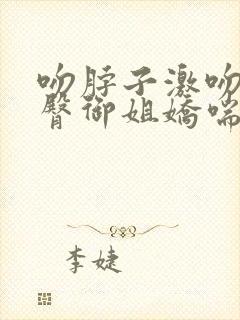 吻脖子激吻
臀御姐嬌喘
李婕